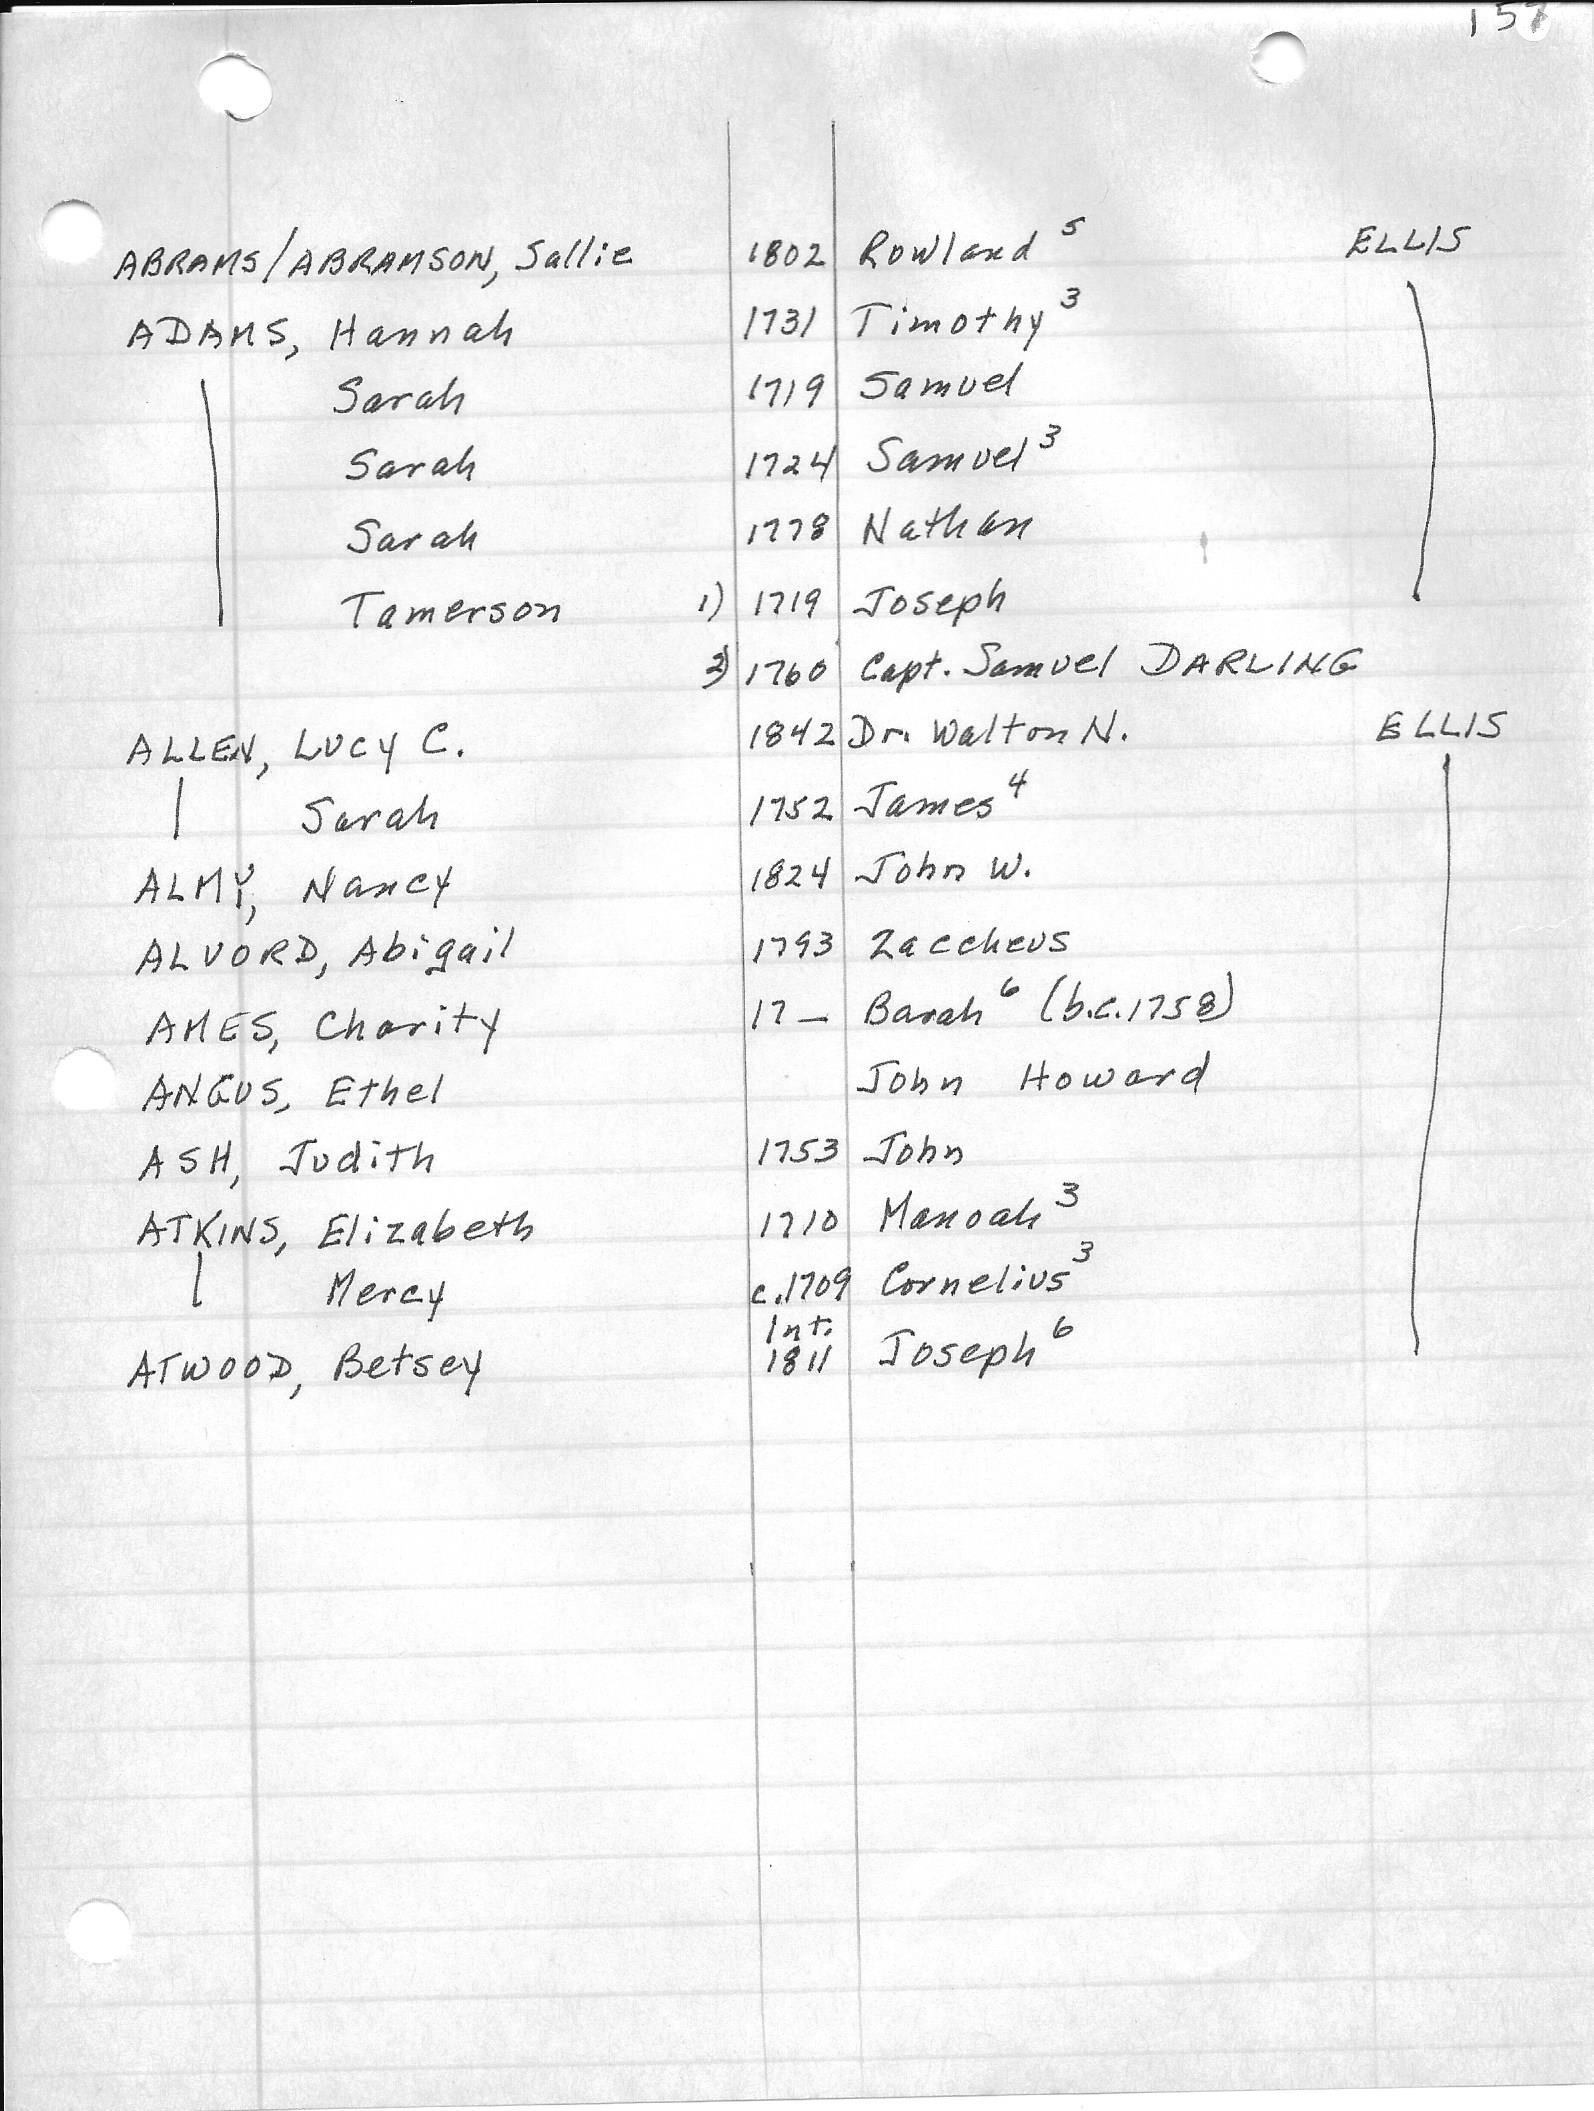 157
ABRAMS/ABRAMSON, Sallie 1802 Rowland 5 ELLIS
ADAMS, Hannah 1731 Timothy 3
Sarah 1719 Samuel
Sarah 1724 Samuel 3
Sarah 1778 Nathan
Tamerson 1) 1719 Joseph
2) 1760 Capt. Samuel DARLING
ALLEN, Lucy C. 1842 Dr. Walton N. ELLIS
Sarah 1752 James 4
ALMY, Nancy 1824 John W.
ALVORD, Abigail 1793 Zaccheus
AMES, Charity 17_ Barah 6 (b.c.1758)
ANGUS, Ethel John Howard
ASH, Judith 1753 John
ATKINS, Elizabeth 1710 Manoah 3
Mercy c.1709 Cornelius 3
Int.
ATWOOD, Betsey 1811 Joseph 6